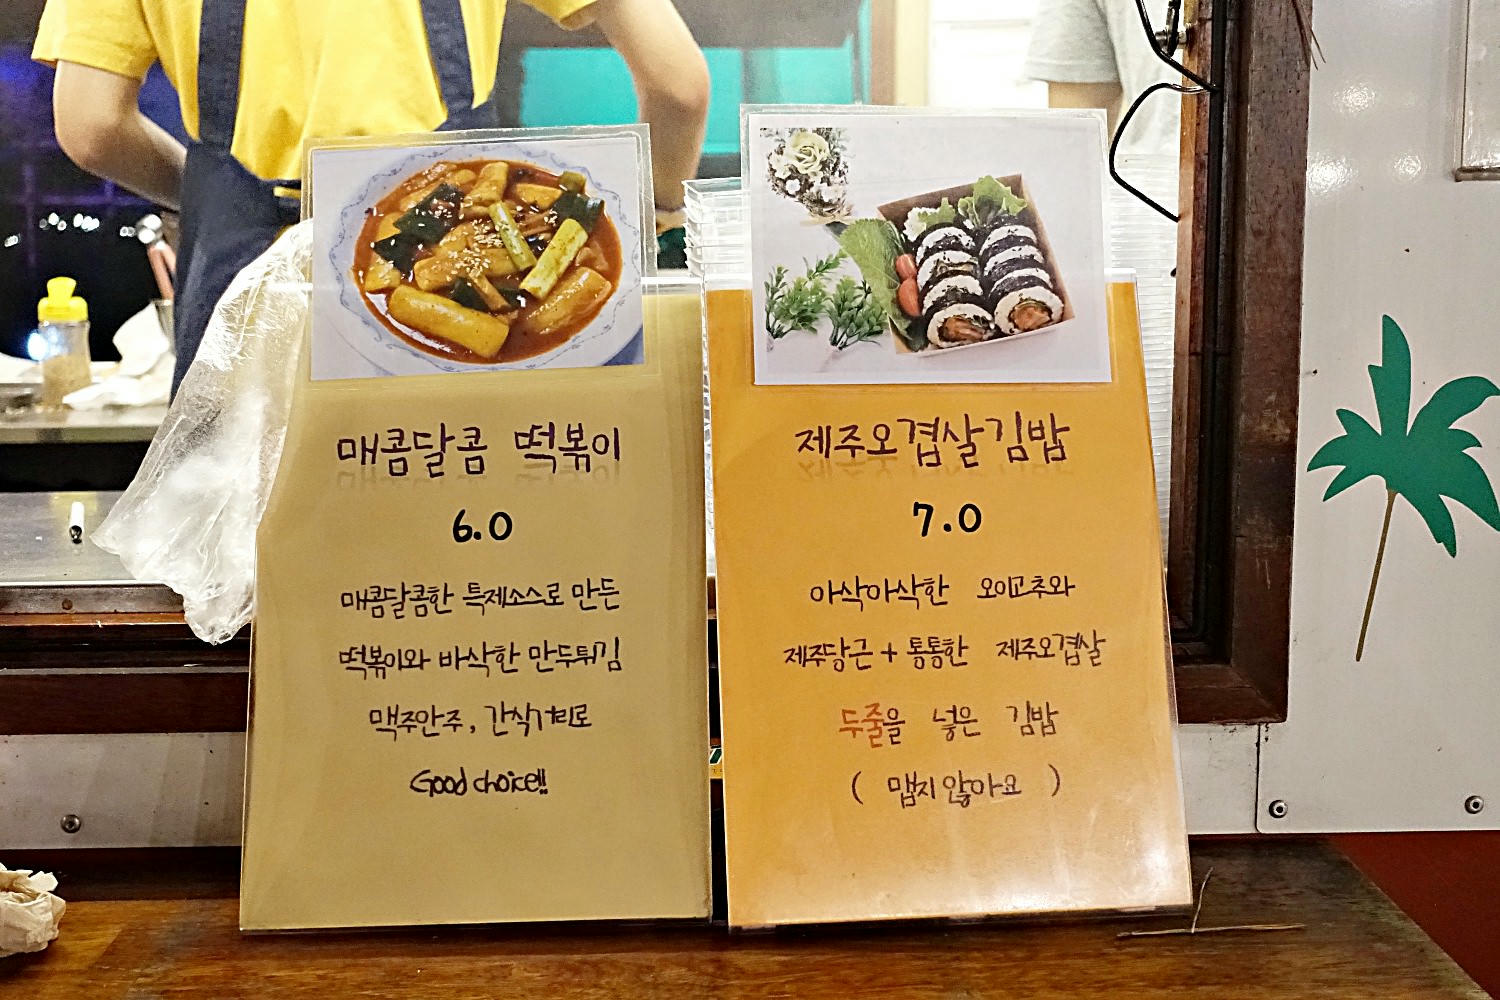 매콤달콤 떡볶이
6.0
매콤달콤한 특제소스로 만든
떡볶이와 바삭한 만두튀김
맥주안주, 간식거리로
Good choice!!
제주오겹살김밥
7.0
아삭아삭한 오이고추와
제주당근 + 통통한 제주오겹살
두줄을 넣은 김밥
( 맵지 않아요 )